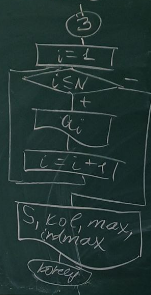 3
i = 1
i ≤ N
−
+
ai
i = i + 1
S, kol, max,
indmax
конец